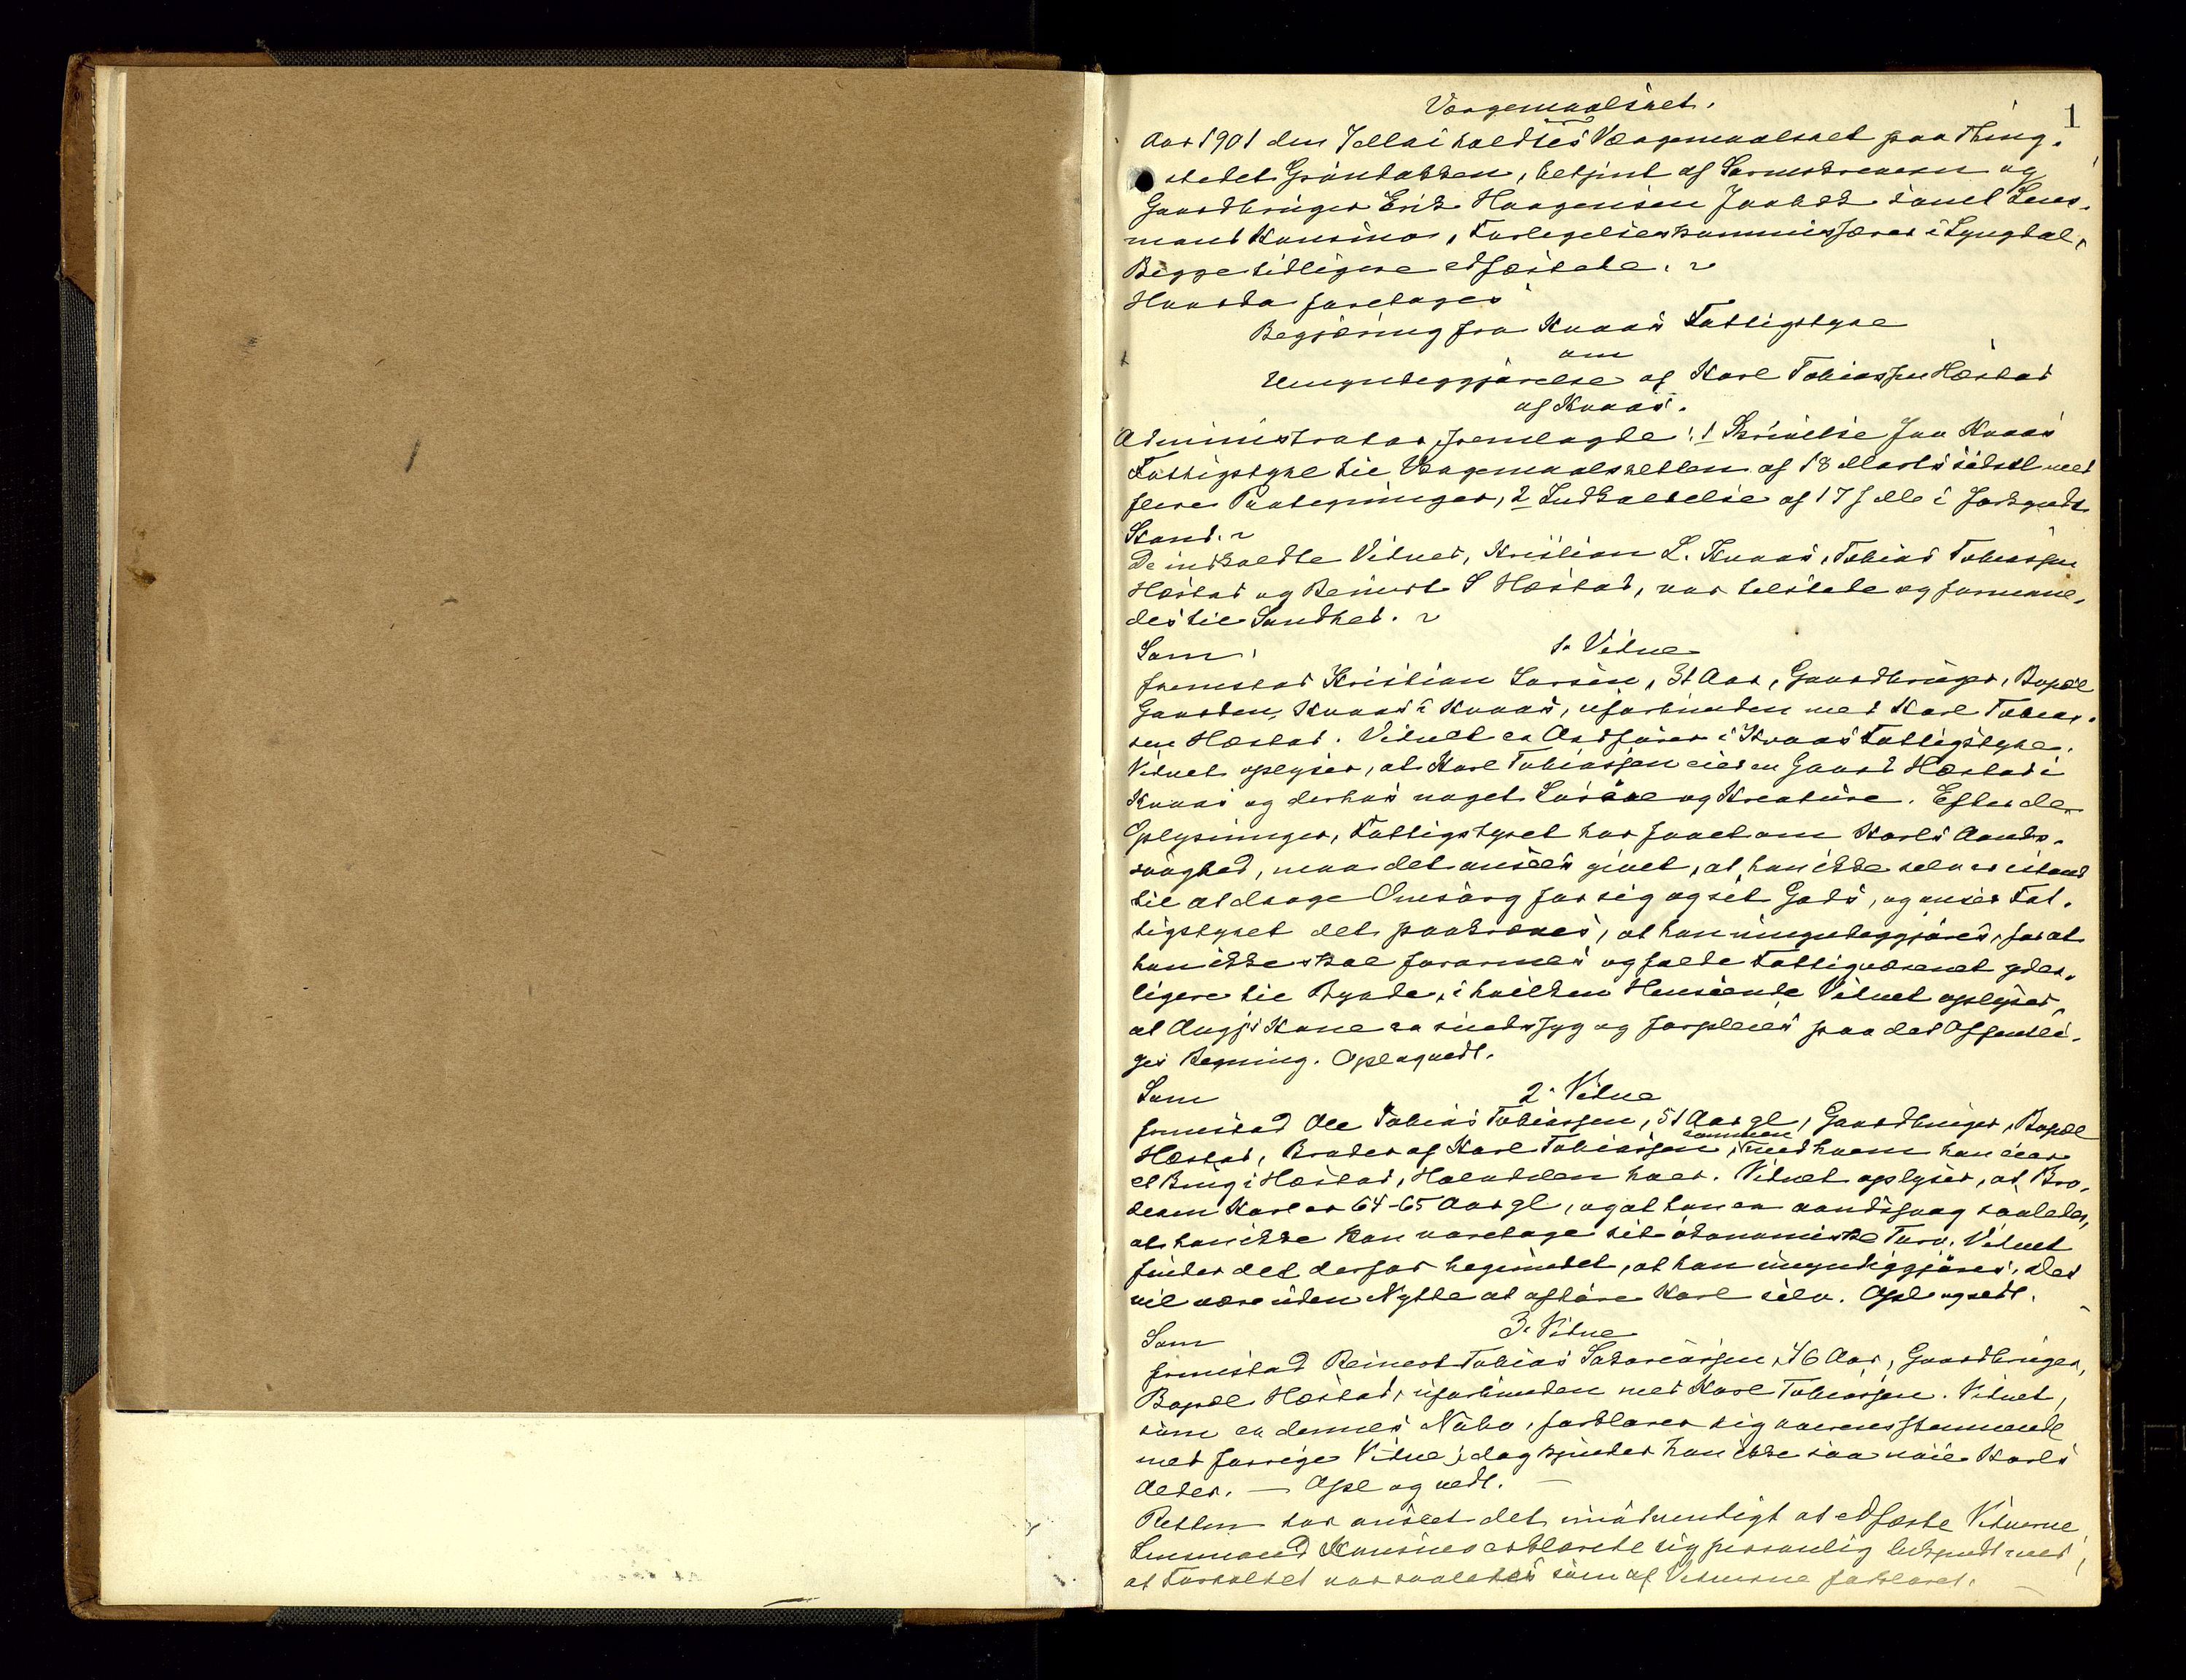 1
Værgemaalsret.
Aar 1901 den 7 Mai holdtes Værgemaalsret paa Thing-
stedet Grøndokken, betjent af Sorenskriveren og
Gaardbruger Erik Haagensen Jaabæk samt Lens-
mand Konsmo, Forligelseskommissærer i Lyngdal,
Begge tidligere edfæstede.
Hvorda foretages
Begjæring fra Kvaas Fattigstyre
om
Umyndiggjørelse af Karl Tobiassen Hæstad
af Kvaas.
Administrator fremlagde: 1 Skrivelse fra Kvaas
Fattigstyre til Værgemaalsretten af 18 Marts sidstl med
flere Paategninger, 2 Indkaldelse af 17 f M i forkyndt
Stand.
De indkaldte Vidner, Kristian L. Kvaas, Tobias Tobiassen
Hæstad og Reinert S Hæstad, var tilstede og formane-
des til Sandhed.
Som 1. Vidne
fremstod Kristian Larsen, 31 Aar, Gaardbruger, Bopæl
Gaarden Kvaas i Kvaas, uforbunden med Karl Tobias-
sen Hæstad. Vidnet er Ordfører i Kvaas Fattigstyre.
Vidnet oplyser, at Karl Tobiassen eier en Gaard Hæstad i
Kvaas og derhos noget Løsøre og Kreature. Efter de
Oplysninger, Fattigstyret har faaet om Karls Aands-
svaghed, maa det ansees givet, at han ikke selv er istand
til at drage Omsorg for sig og sit Gods, og anser Fat-
tigstyret det paakrævet, at han umyndiggjøres, for at
han ikke skal forarmes og falde Fattigvæsenet yder-
ligere til Byrde, i hvilken Henseende Vidnet oplyser,
at Angjs Kone er sindssyg og forpleies paa det Offentli-
ges Regning. Opl og vedt.
Som 2. Vidne
fremstod Ole Tobias Tobiassen, 51 Aar gl, Gaardbruger, Bopæl
Hæstad, Broder af Karl Tobiassen, sammen med hvem han eier
et Brug i Hæstad, Halvdelen hver. Vidnet oplyser, at Bro-
deren Karl er 64-65 Aar gl, og at han er aandssvag saaledes,
at han ikke kan varetage sit økonomiske Tarv. Vidnet
finder det derfor begrundet, at han umyndiggjøres. Det
vil være uden Nytte at afhøre Karl selv. Opl og vedt.
Som 3. Vidne
fremstod Reinert Tobias Sakariassen, 46 Aar, Gaardbruger,
Bopæl Hæstad, uforbunden med Karl Tobiassen. Vidnet,
som er dennes Nabo, forklarer sig overensstemmende
med forrige Vidne; dog kjender han ikke saa nøie Karls
Alder. — Opl og vedt. —
Retten har anseet det unødvendigt at edfæste Vidnerne,
Lensmand Konsmo erklærede sig personlig bekjendt med,
at Forholdet var saaledes som af Vidnerne forklaret. —